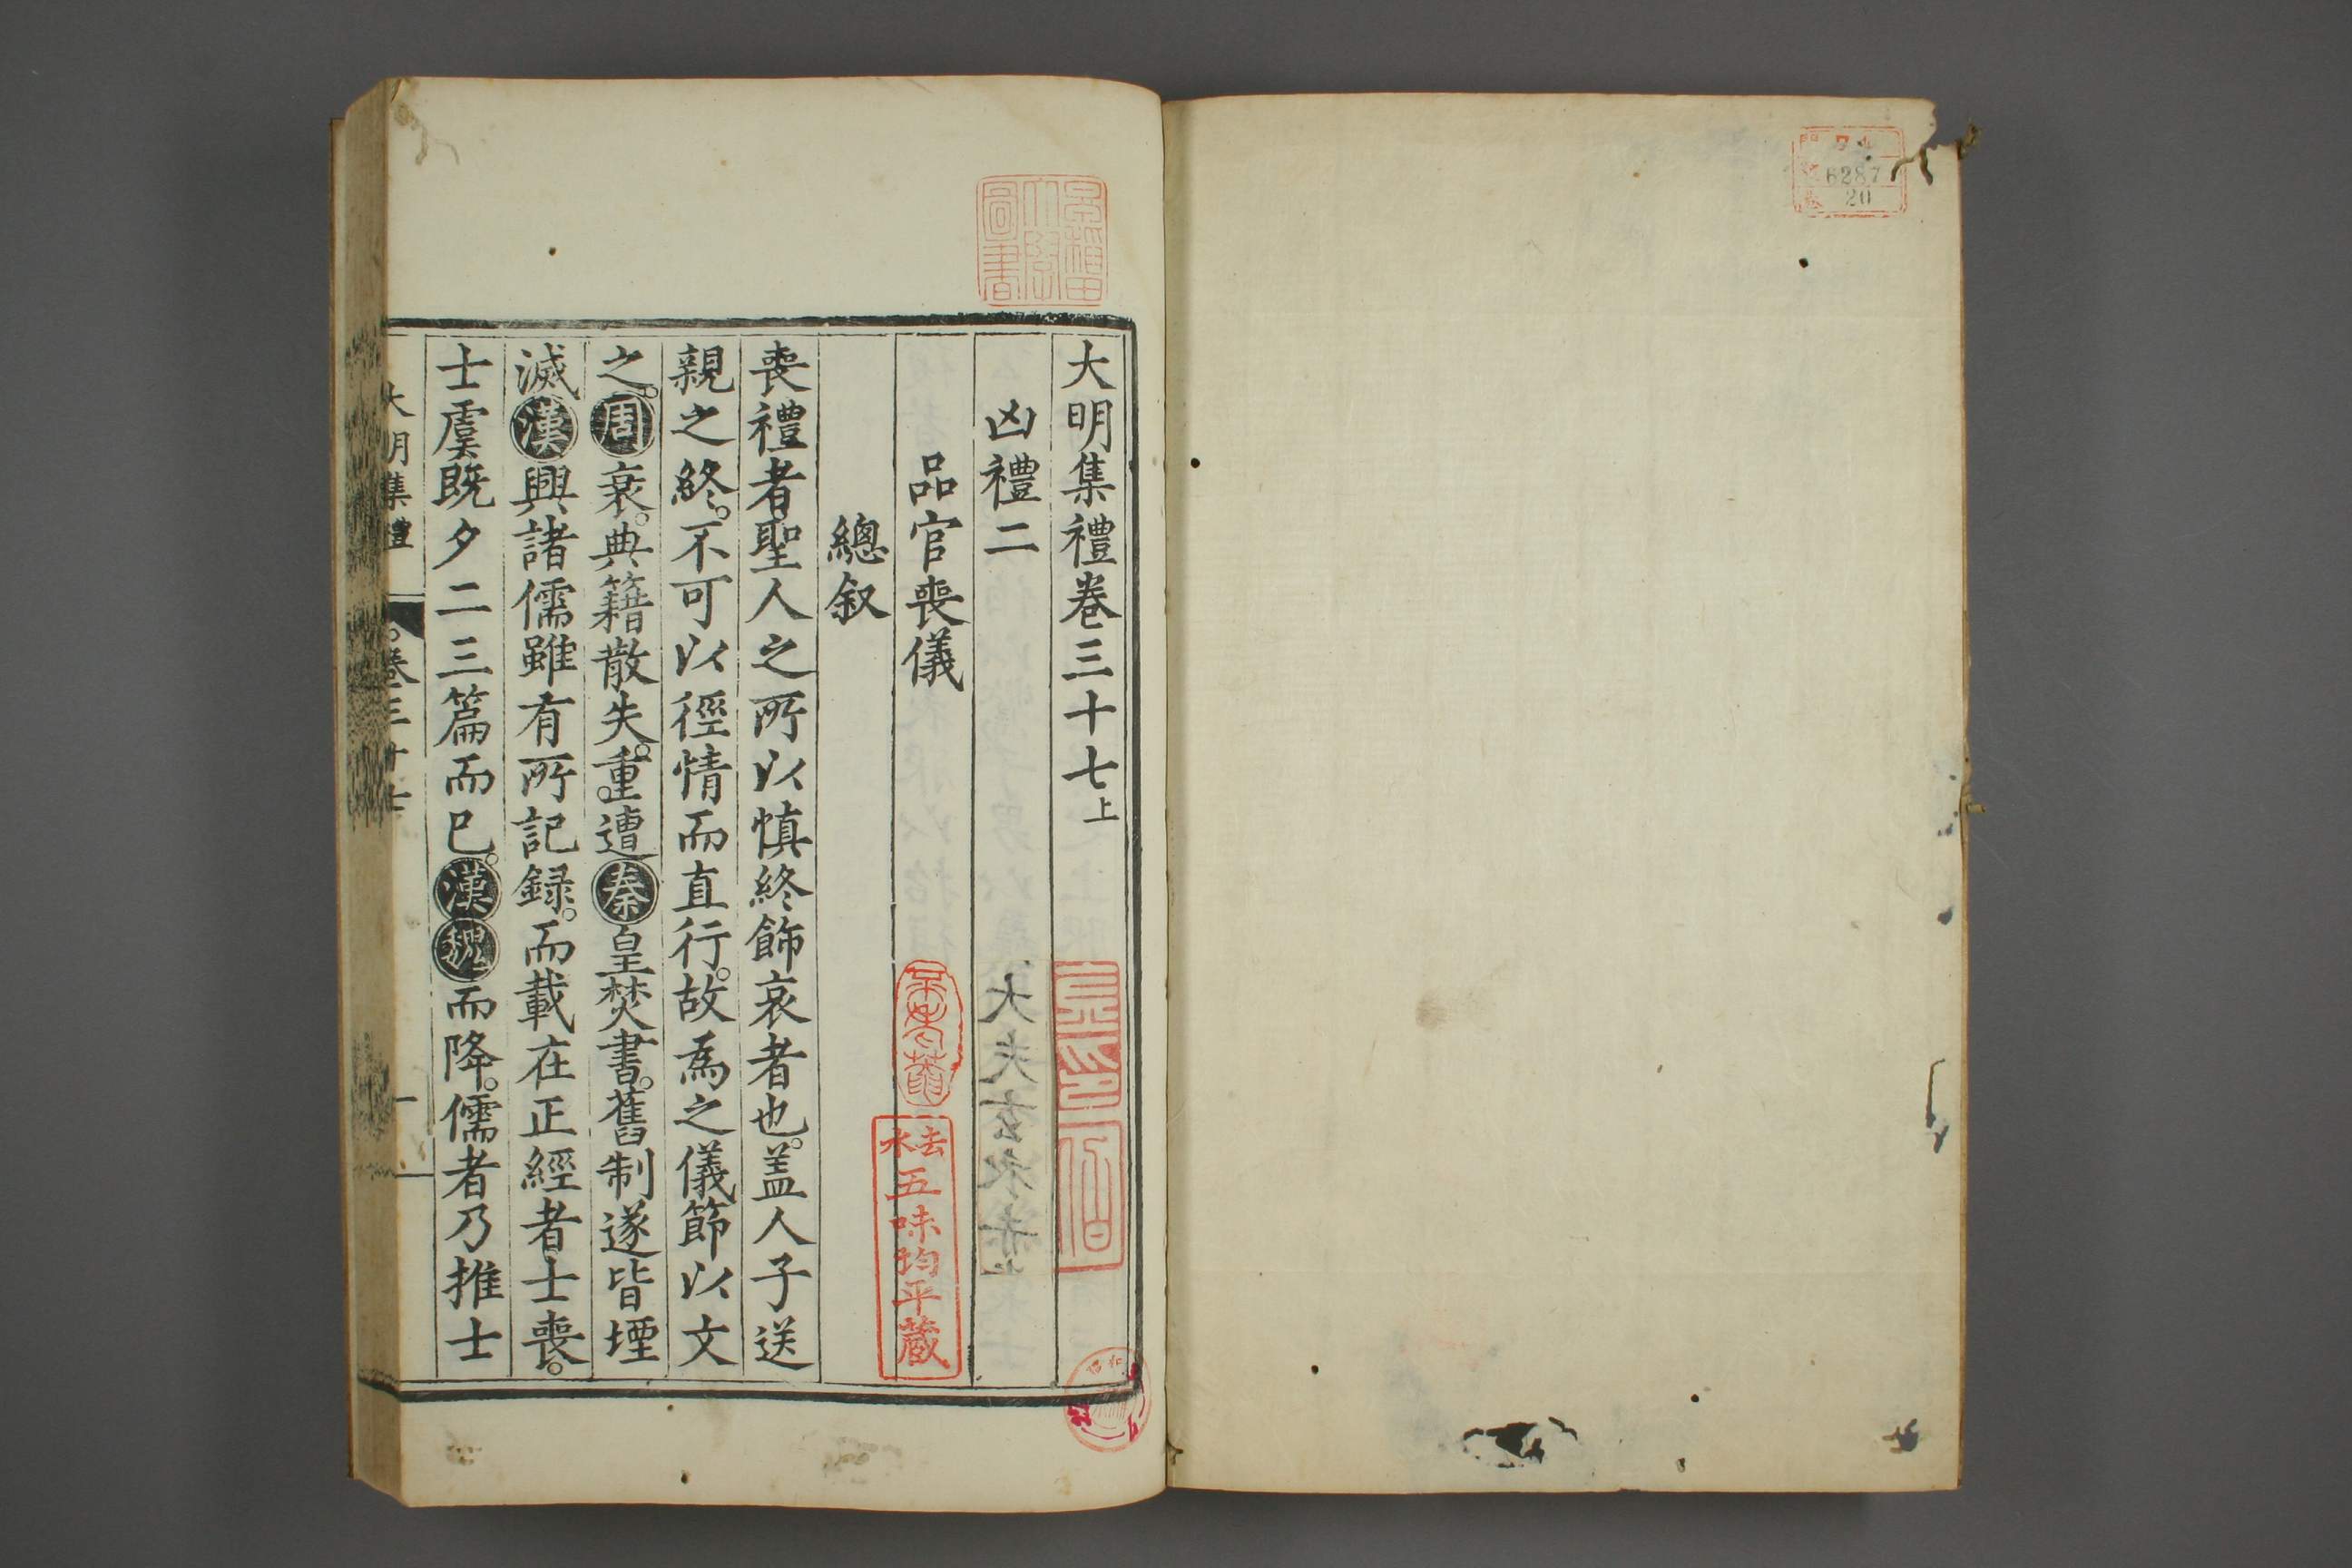 大明集禮卷三十七上
凶禮二
品官喪儀
總叙
喪禮者聖人之所以慎終飾哀者也。盖人子送
親之終。不可以徑情而直行。故爲之儀節以文
之。周衰。典籍散失。重遭秦皇焚書。舊制遂皆堙
滅漢興諸儒雖有所記録。而載在正經者士喪。
士虞既夕二三篇而已。漢魏而降。儒者乃推士
大明集禮
卷三十七
一
去水
五味均平藏
早稲田大學圖書
6287
20